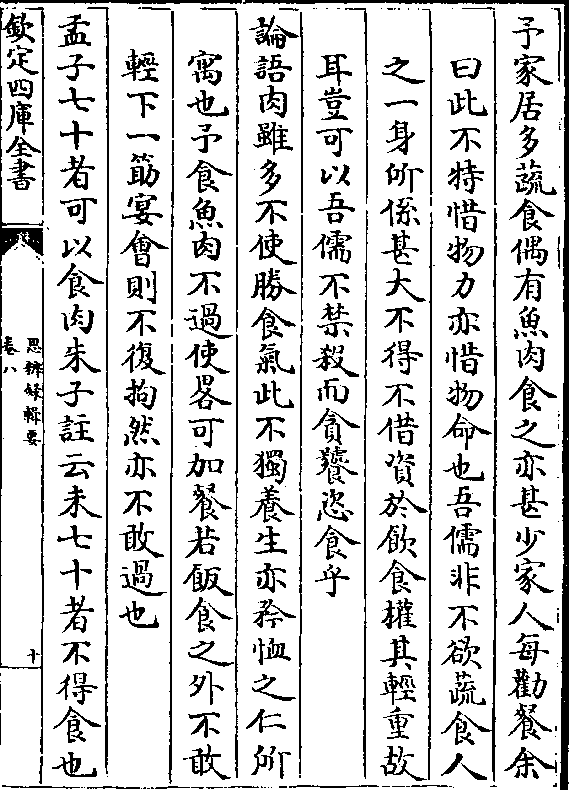 予家居多蔬食偶有魚肉食之亦甚少家人每勸餐余
曰此不特惜物力亦惜物命也吾儒非不欲蔬食人
之一身所係甚大不得不借資於飲食權其輕重故
耳豈可以吾儒不禁殺而貪饕恣食乎
論語肉雖多不使勝食氣此不獨養生亦矜恤之仁所
寓也予食魚肉不過使畧可加餐若飯食之外不敢
輕下一筯宴會則不復拘然亦不敢過也
孟子七十者可以食肉朱子註云未七十者不得食也
欽定四庫全書
思辨錄輯要
卷八
十